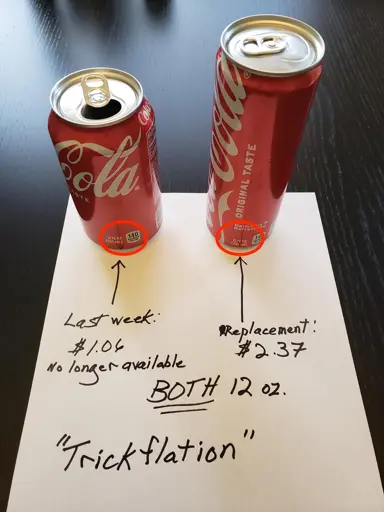 Cola
Coca-Cola
ORIGINAL TASTE
140
Last week:
$1.06
No longer available
Replacement:
$2.37
BOTH 12 oz.
"Trickflation"